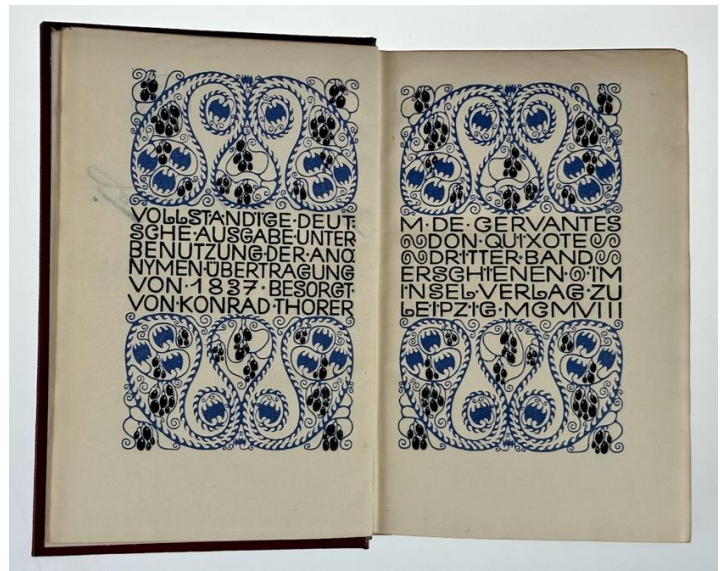 VOLLSTÄNDIGE·DEUT
SCHE·AUSGABE·UNTER
BENUTZUNG·DER·ANO
NYMEN·ÜBERTRAGUNG
VON·1837·BESORGT·
VON·KONRAD·THORER
M·DE·CERVANTES
DON·QUIXOTE
DRITTER·BAND
ERSCHIENEN·IM
INSEL·VERLAG·ZU
LEIPZIG·MCMVIII